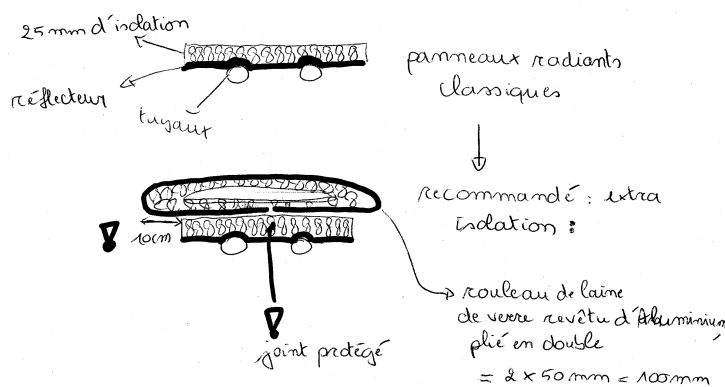 25mm d'isolation
réflecteur
tuyaux
panneaux radiants
classiques
recommandé : extra
isolation :
! 10cm
!
joint protégé
rouleau de laine
de verre revêtu d'Aluminium,
plié en double
= 2 x 50 mm = 100 mm